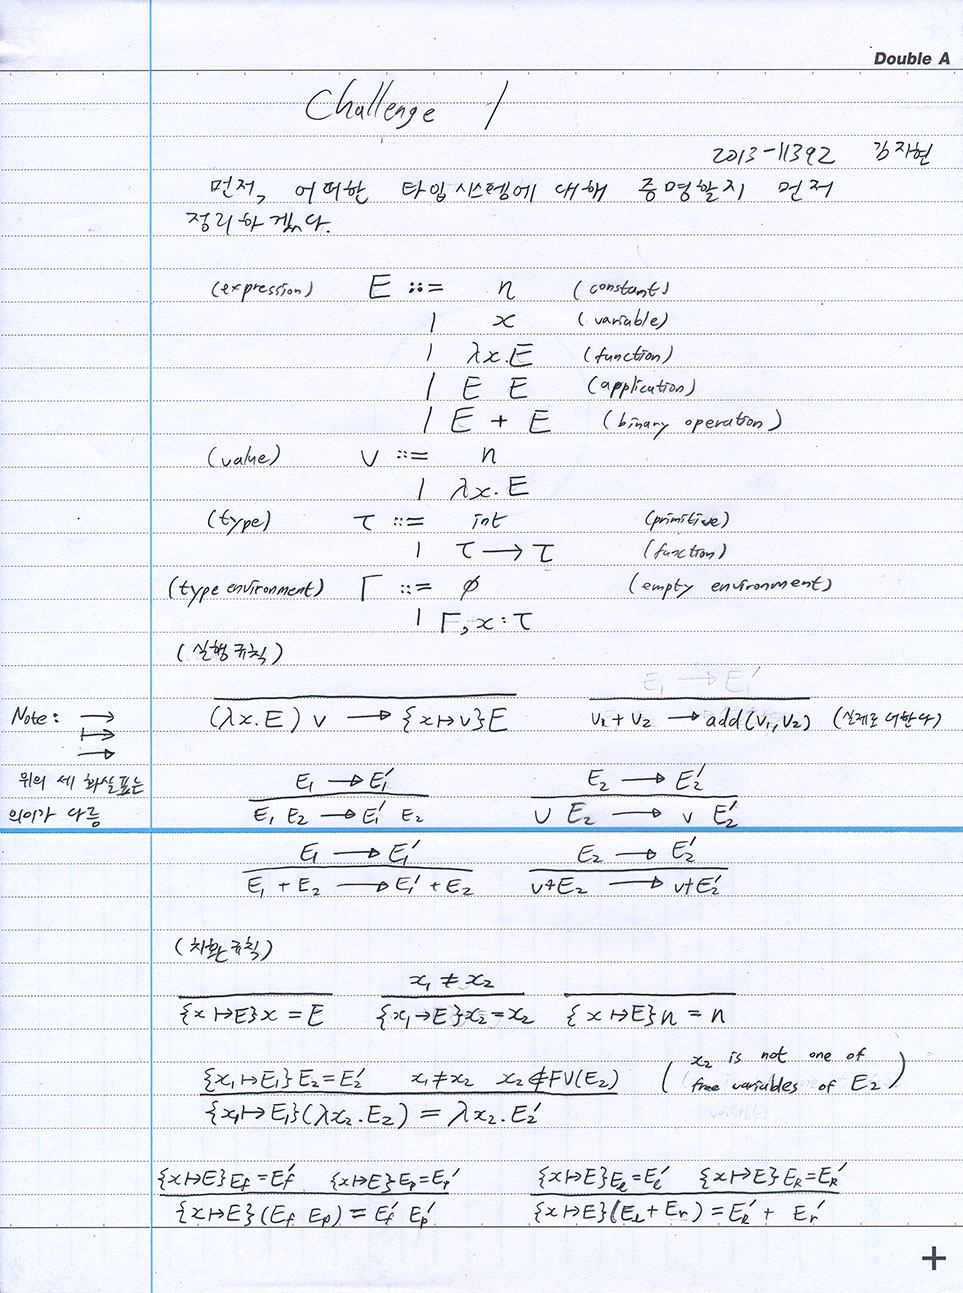 Double A
Challenge 1
2013-11392 김지현
먼저, 어떠한 타입시스템에 대해 증명할지 먼저
정리하겠다.
(expression) E ::= n (constant)
| x (variable)
| λx.E (function)
| E E (application)
| E + E (binary operation)
(value) v ::= n
| λx.E
(type) τ ::= int (primitive)
| τ → τ (function)
(type environment) Γ ::= ∅ (empty environment)
| Γ, x : τ
(실행규칙)
E₁ → E₁′
Note: →
(λx.E) v → {x ↦ v}E
v₁ + v₂ → add(v₁, v₂) (실제로 더한다)
↦
→
위의 세 화살표는
의미가 다름
E₁ → E₁′
E₁ E₂ → E₁′ E₂
E₂ → E₂′
v E₂ → v E₂′
E₁ → E₁′
E₁ + E₂ → E₁′ + E₂
E₂ → E₂′
v + E₂ → v + E₂′
(치환규칙)
{x ↦ E}x = E
x₁ ≠ x₂
{x₁ → E}x₂ = x₂
{x ↦ E}n = n
{x₁ ↦ E₁}E₂ = E₂′ x₁ ≠ x₂ x₂ ∉ FV(E₂)
{x₁ ↦ E₁}(λx₂.E₂) = λx₂.E₂′
(x₂ is not one of
free variables of E₂)
{x ↦ E}E_f = E_f′ {x ↦ E}E_p = E_p′
{x ↦ E}(E_f E_p) = E_f′ E_p′
{x ↦ E}E_l = E_l′ {x ↦ E}E_R = E_R′
{x ↦ E}(E_l + E_r) = E_l′ + E_r′